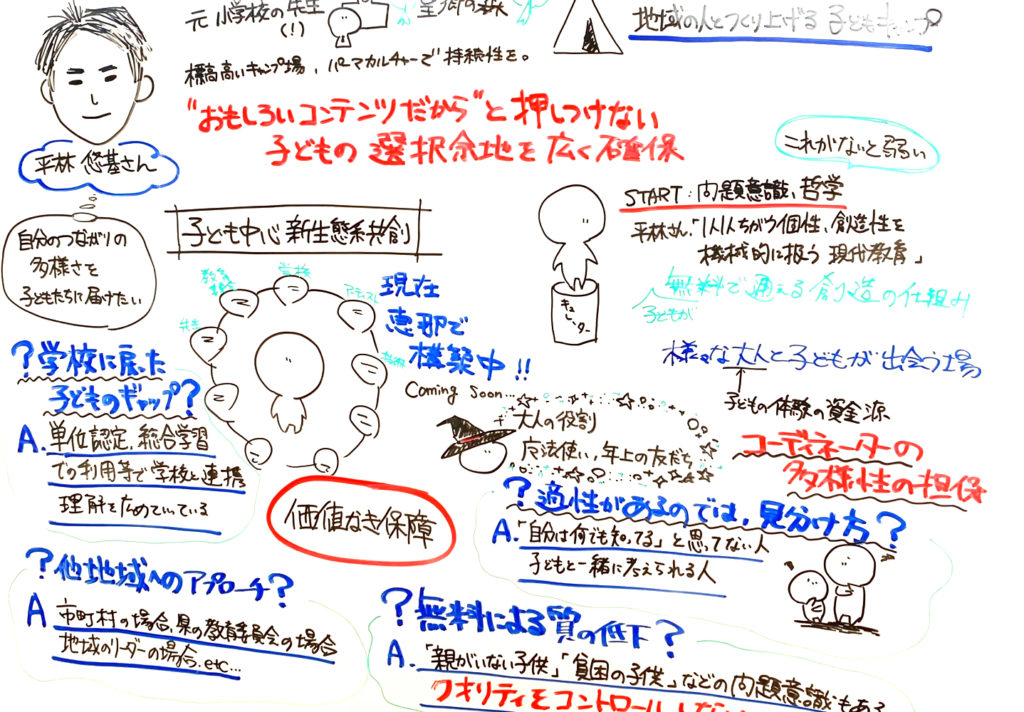 元 小学校の先生
(!)
地域の人とつくり上げる 子どもキャンプ
標高高いキャンプ場、パーマカルチャーで持続性を。
"おもしろいコンテンツだから"と押しつけない
子どもの選択余地を広く確保
平林 悠基さん
自分のつながりの
多様さを
子どもたちに届けたい
これがないと弱い
START:問題意識、哲学
平林さん「1人1人ちがう個性、創造性を
機械的に扱う現代教育」
無料で通える創造の仕組み
子どもが
キュレーター
様々な大人と子どもが出会う場
子どもの体験の資金源
コーディネーターの
多様性の担保
子ども中心 新生態系共創
教育
学校
アーティスト
現在
恵那で
構築中!!
Coming Soon...
価値なき保障
大人の役割
魔法使い、年上の友だち
?学校に戻った
子どものギャップ?
A. 単位認定、総合学習
での利用等で学校と連携
理解を広めていっている
?適性があるのでは、見分け方?
A.「自分は何でも知ってる」と思ってない人
子どもと一緒に考えられる人
?他地域へのアプローチ?
A 市町村の場合、県の教育委員会の場合
地域のリーダーの場合、etc...
?無料による質の低下?
A.「親がいない子供」「貧困の子供」などの問題意識もある
クオリティをコントロールしない